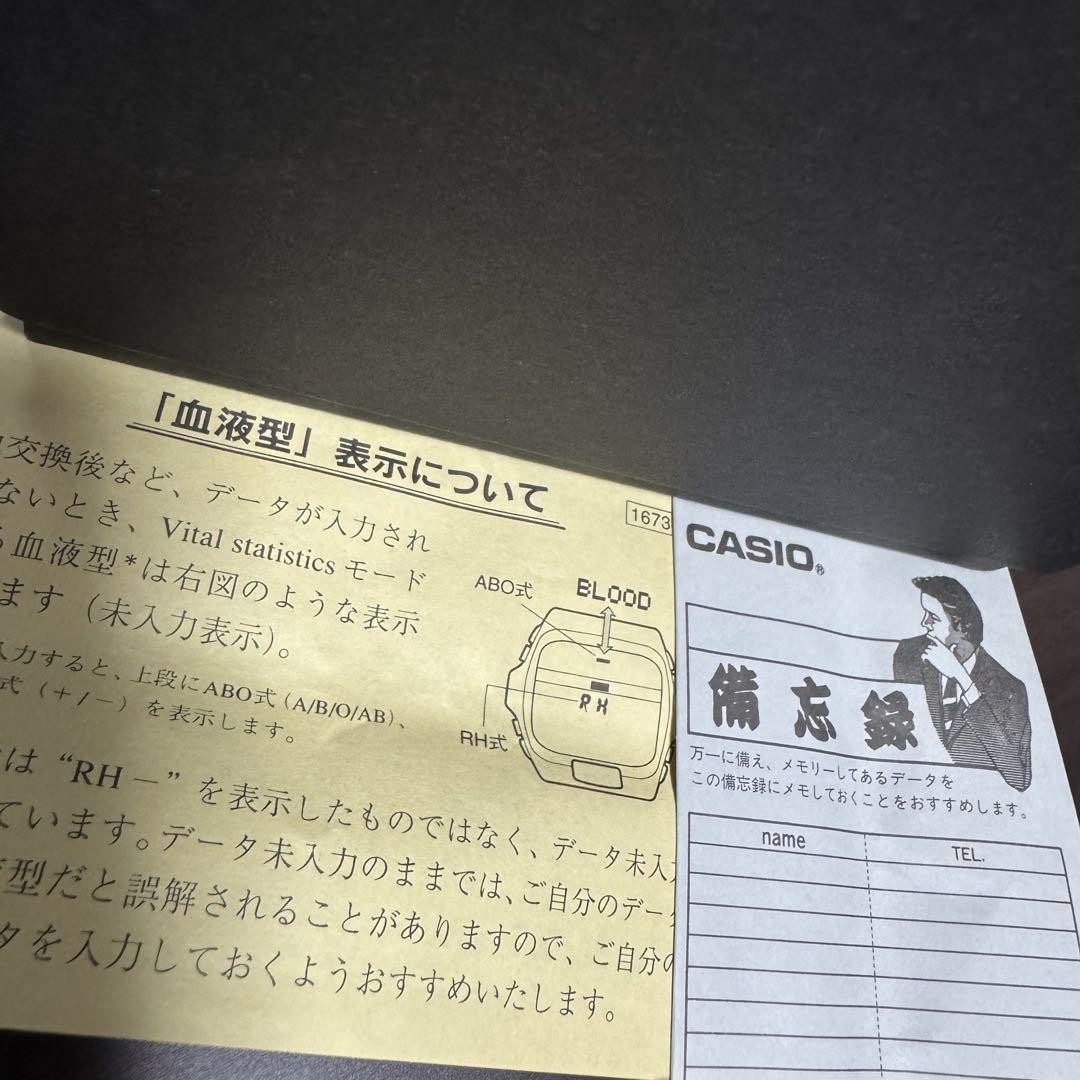 「血液型」表示について
1673
交換後など、データが入力され
ないとき、Vital statisticsモード
血液型*は右図のような表示
ます（未入力表示）。
入力すると、上段にABO式（A/B/O/AB）、
式（＋/－）を表示します。
ABO式
BLOOD
RH
RH式
は“RH－”を表示したものではなく、データ未入
ています。データ未入力のままでは、ご自分のデー
型だと誤解されることがありますので、ご自分
タを入力しておくようおすすめいたします。
CASIO®
備忘録
万一に備え、メモリーしてあるデータを
この備忘録にメモしておくことをおすすめします。
name TEL.